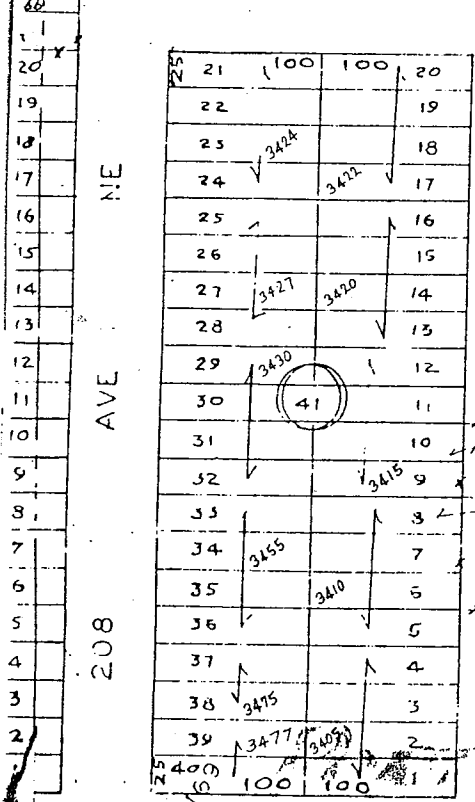 66
20
19
18
17
16
15
14
13
12
11
10
9
8
7
6
5
4
3
2
208 AVE NE
25 21 100 100 20
22 19
23 3424 18
24 3422 17
25 16
26 15
27 3427 3420 14
28 13
29 3430 12
30 41 11
31 10
32 3415 9
33 8
34 3455 7
35 3410 6
36 5
37 4
38 3475 3
39 3477 3405 2
25 40 100 100 1